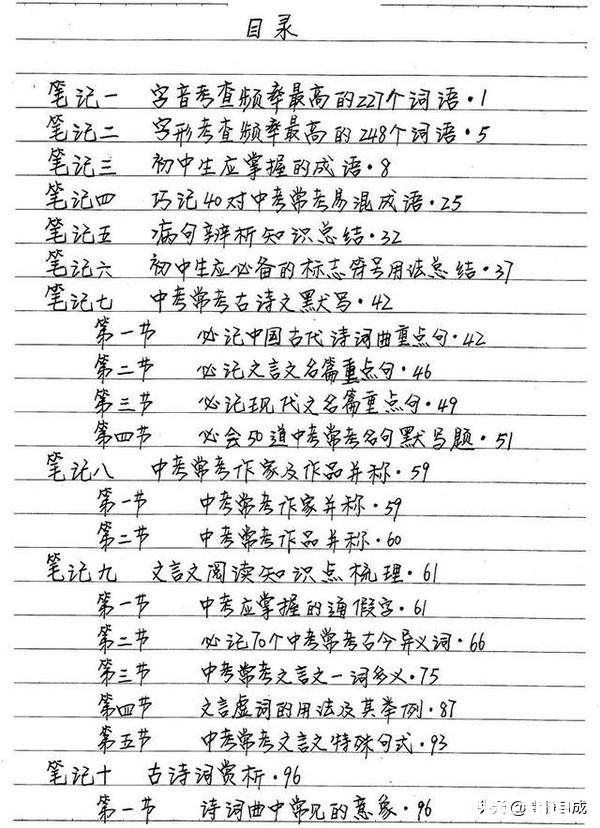 目录
笔记一 字音考查频率最高的227个词语·1
笔记二 字形考查频率最高的248个词语·5
笔记三 初中生应掌握的成语·8
笔记四 巧记40对中考常考易混成语·25
笔记五 病句辨析知识总结·32
笔记六 初中生应必备的标志符号用法总结·37
笔记七 中考常考古诗文默写·42
第一节 必记中国古代诗词曲重点句·42
第二节 必记文言文名篇重点句·46
第三节 必记现代文名篇重点句·49
第四节 必会50道中考常考名句默写题·51
笔记八 中考常考作家及作品并称·59
第一节 中考常考作家并称·59
第二节 中考常考作品并称·60
笔记九 文言文阅读知识点梳理·61
第一节 中考应掌握的通假字·61
第二节 必记70个中考常考古今异义词·66
第三节 中考常考文言文一词多义·75
第四节 文言虚词的用法及其举例·87
第五节 中考常考文言文特殊句式·93
笔记十 古诗词赏析·96
第一节 诗词曲中常见的意象·96
头条 @